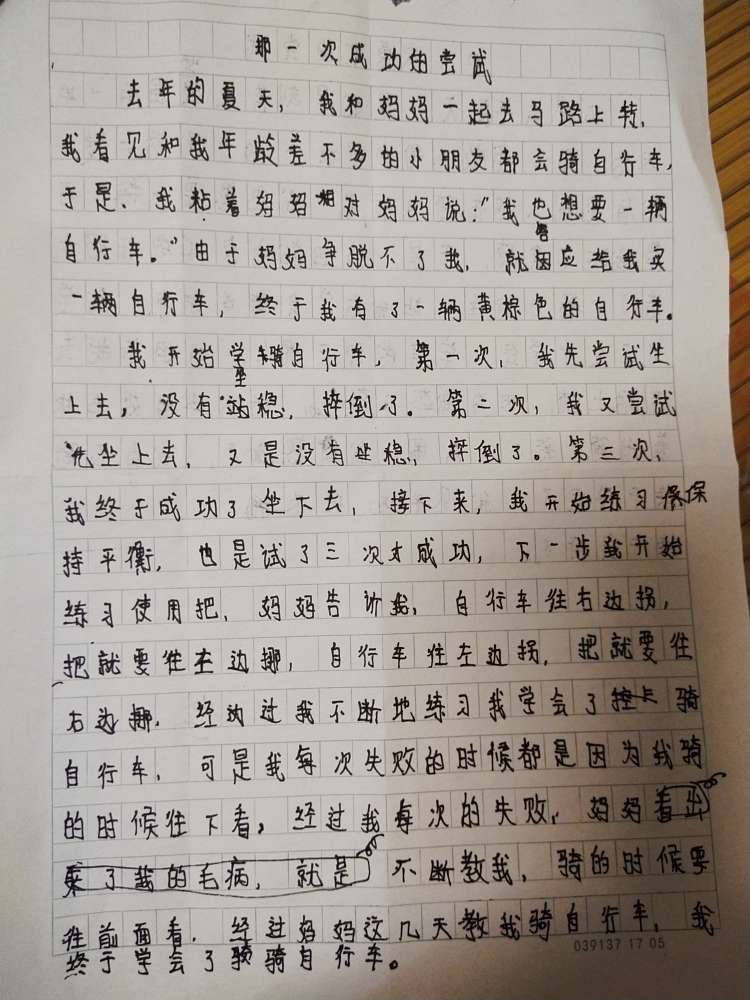 那一次成功的尝试
去年的夏天，我和妈妈一起去马路上转，
我看见和我年龄差不多的小朋友都会骑自行车，
于是，我粘着妈妈 对妈妈说：“我也想要一辆
自行车。”由于妈妈争脱不了我，就答应给我买
一辆自行车，终于我有了一辆黄棕色的自行车。
我开始学骑自行车，第一次，我先尝试坐
上去，没有坐稳，摔倒了。第二次，我又尝试
先坐上去，又是没有坐稳，摔倒了。第三次，
我终于成功了坐下去，接下来，我开始练习保
持平衡，也是试了三次才成功，下一步我开始
练习使用把，妈妈告诉我，自行车往右边拐，
把就要往左边挪，自行车往左边拐，把就要往
右边挪，经过我不断地练习我学会了骑
自行车，可是我每次失败的时候都是因为我骑
的时候往下看，经过我每次的失败，妈妈看出
来了我的毛病，就是不断教我，骑的时候要
往前面看，经过妈妈这几天教我骑自行车，我
终于学会了骑自行车。
039137 17 05